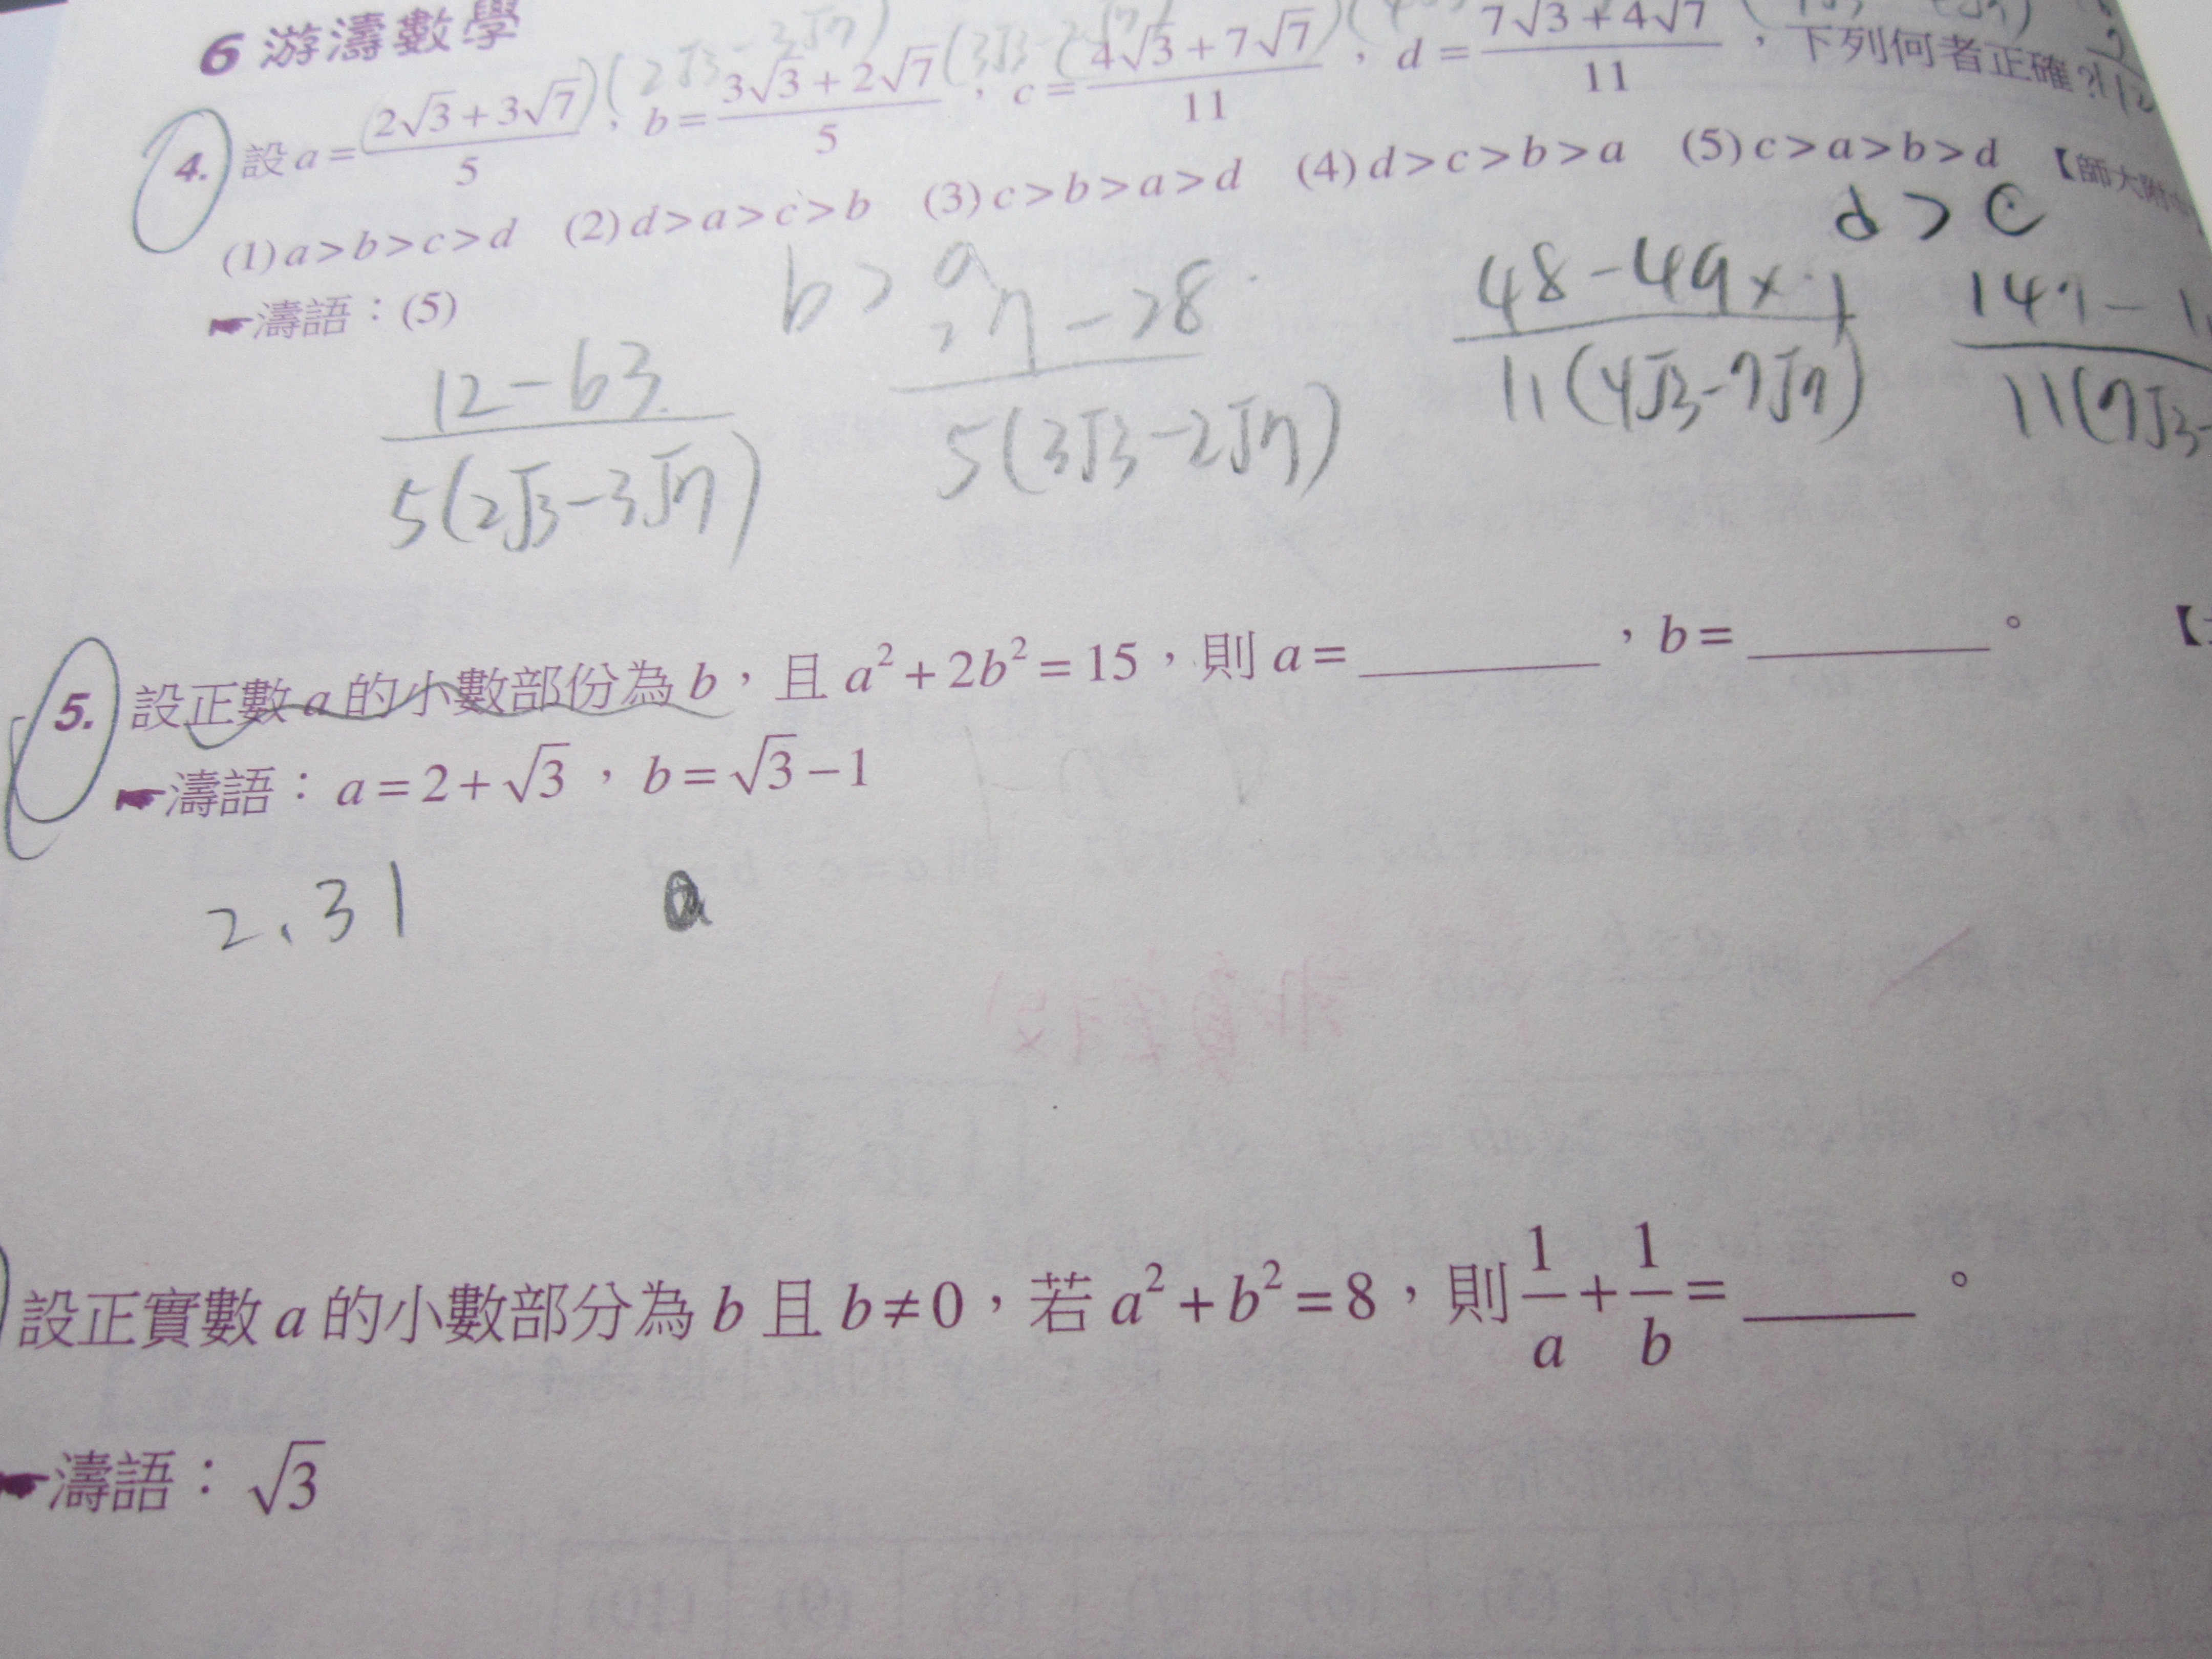 6 游濤數學
4. 設 a = (2√3 + 3√7)/5 , b = (3√3 + 2√7)/5 , c = (4√3 + 7√7)/11 , d = (7√3 + 4√7)/11 , 下列何者正確?
(2√3 - 3√7) (3√3 - 2√7)
(1) a > b > c > d (2) d > a > c > b (3) c > b > a > d (4) d > c > b > a (5) c > a > b > d 【師大附中
☛濤語：(5)
b > a
d > c
(12 - 63)/(5(2√3 - 3√7)) (27 - 28)/(5(3√3 - 2√7)) (48 - 49×7)/(11(4√3 - 7√7))
5. 設正數 a 的小數部份為 b，且 a² + 2b² = 15，則 a = ＿＿＿，b = ＿＿＿。 【
☛濤語：a = 2 + √3，b = √3 - 1
2.31 a
設正實數 a 的小數部分為 b 且 b ≠ 0，若 a² + b² = 8，則 1/a + 1/b = ＿＿＿。
☛濤語：√3